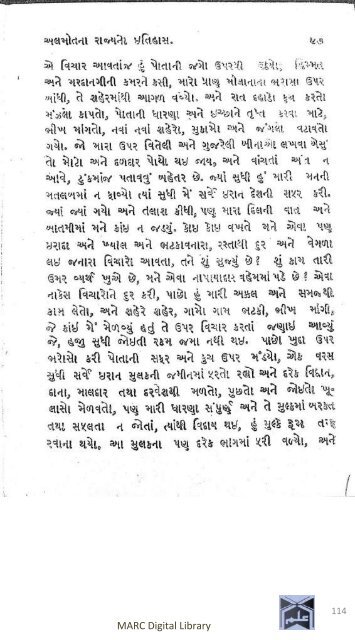 અલમોતના રાજ્યનો ઇતિહાસ. ૬૭
એ વિચાર આવતાંજ હું પોતાની જગા ઉપરથી ઉઠયો, હિમ્મત
અને મરદાનગીની કમરને કસી, મારો પ્રાણુ મોઝાનાના ભરોસા ઉપર
બાંધી, તે શહેરમાંથી આગળ વધ્યો. અને રાત દહાડો કૂચ કરતો
મંઝલો કાપતો, પોતાની ધારણા અને ઇચ્છાને તૃપ્ત કરવા માટે,
ભીખ માંગતો, નવાં નવાં શહેરો, મુકામો અને જંગલો વટાવતો
ગયો. જો મારા ઉપર વિતેલી અને ગુજરેલી બીનાઓ લખવા બેસું
તો મોટા અને દળદાર પોથો થઇ જાય, અને વાંચતાં અંત ન
આવે, ટુંકમાંજ પતાવવું બહેતર છે. જ્યાં સુધી હું મારી મનની
મતલબમાં ન ફાવ્યો ત્યાં સુધી મેં સર્વે ઇરાન દેશની સફર કરી.
જ્યાં જ્યાં ગયો અને તલાશ કીધી, પણ મારા દિલની વાત અને
બાતમીમાં મને કાંઇ ન જડયું. કોઇ કોઇ વખતે મને એવા પણ
ઇરાદા અને ખ્યાલ અને ભટકાવનારા, રસ્તાથી દુર અને વેગળા
લઇ જનારા વિચારો આવતા, તને શું સુજ્યું છે? શું કામ તારી
ઉમર વ્યર્થ ખુએ છે, મને એવા નાપાયાદાર વહેમમાં પડે છે? એવા
નાકેસ વિચારોને દુર કરી, પાછો હું મારી અક્કલ અને સમજથી
કામ લેતો, અને શહેરે શહેર, ગામો ગામ ભટકી, ભીખ માંગી,
જે કાંઇ મેં મેળવ્યું હતું તે ઉપર વિચાર કરતાં જણાઇ આવ્યું
જે, હજી સુધી જોઇતી રકમ જમા નથી થઇ. પાછો ખુદા ઉપર
ભરોસો કરી પોતાની સફર અને કુચ ઉપર મંડયો, એક વરસ
સુધી સર્વે ઇરાન મુલકની જમીનમાં ફરતો રહ્યો અને દરેક વિદ્વાન,
દાના, માલદાર તથા દરવેશથી મળતો, પુછતો અને જોઇતો ખૂ-
લાસો મેળવતો, પણ મારી ધારણા સંપુર્ણ અને તે મુલ્કમાં બરકત
તથા સફલતા ન જોતાં, ત્યાંથી વિદાય થઇ, હું મુલ્કે રૂમ તરફ
રવાના થયો. આ મુલકના પણ દરેક ભાગમાં ફરી વળ્યો, અને
114
MARC Digital Library